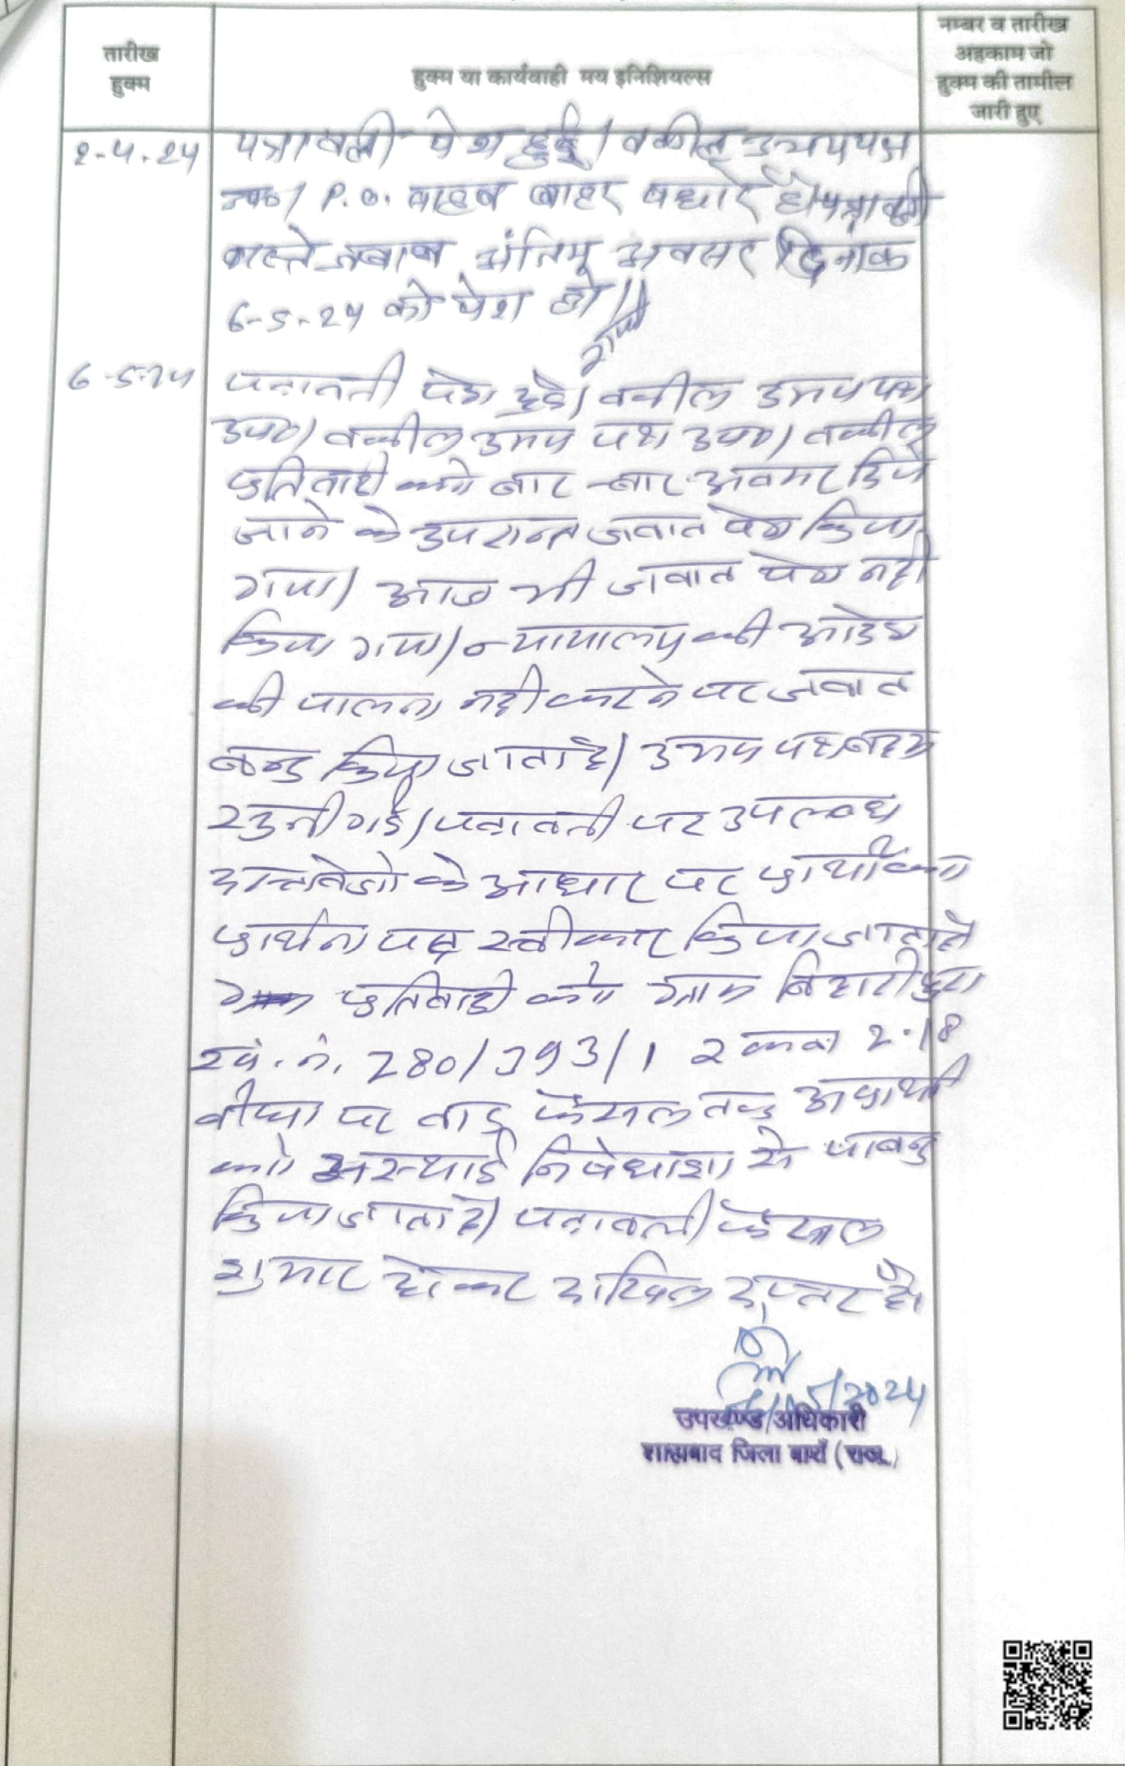 तारीख
हुक्म
हुक्म या कार्यवाही मय इनिशियल्स
नम्बर व तारीख
अहकाम जो
हुक्म की तामील
जारी हुए
2-4-24 पत्रावली पेश हुई। वकील उभयपक्ष
उप0। P.O. साहब बाहर पधारे है। पत्रावली
वास्ते जवाब अंतिम अवसर दिनांक
6-5-24 को पेश हो।।
6-5-24 पत्रावली पेश हुई। वकील उभय पक्ष
उप0। वकील उभय पक्ष उप0। वकील
प्रतिवादी को बार-बार अवसर दिये
जाने के उपरान्त जवाब पेश किया
गया। आज भी जवाब पेश नही
किया गया। न्यायालय की आदेश
की पालना नही करने पर जवाब
बन्द किया जाता है। उभय पक्ष बहस
सुनी गई। पत्रावली पर उपलब्ध
दस्तावेजो के आधार पर प्रार्थी का
प्रार्थना पत्र स्वीकार किया जाता है
प्रतिवादी को ग्राम बिहारीपुरा
ख.नं. 280/393/1 रकबा 2.18
बीघा पर वाद फैसल तक अप्रार्थी
को अस्थाई निषेधाज्ञा से पाबन्द
किया जाता है। पत्रावली फैसल
शुमार होकर दाखिल दफ्तर हो।
/05/2024
उपखण्ड अधिकारी
शाहाबाद जिला बारॉं (राज.)